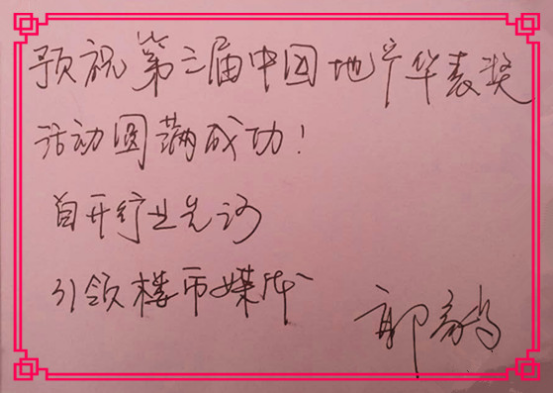 预祝第三届中国地产华表奖
活动圆满成功！
首开行业先河
引领楼市媒体
郭